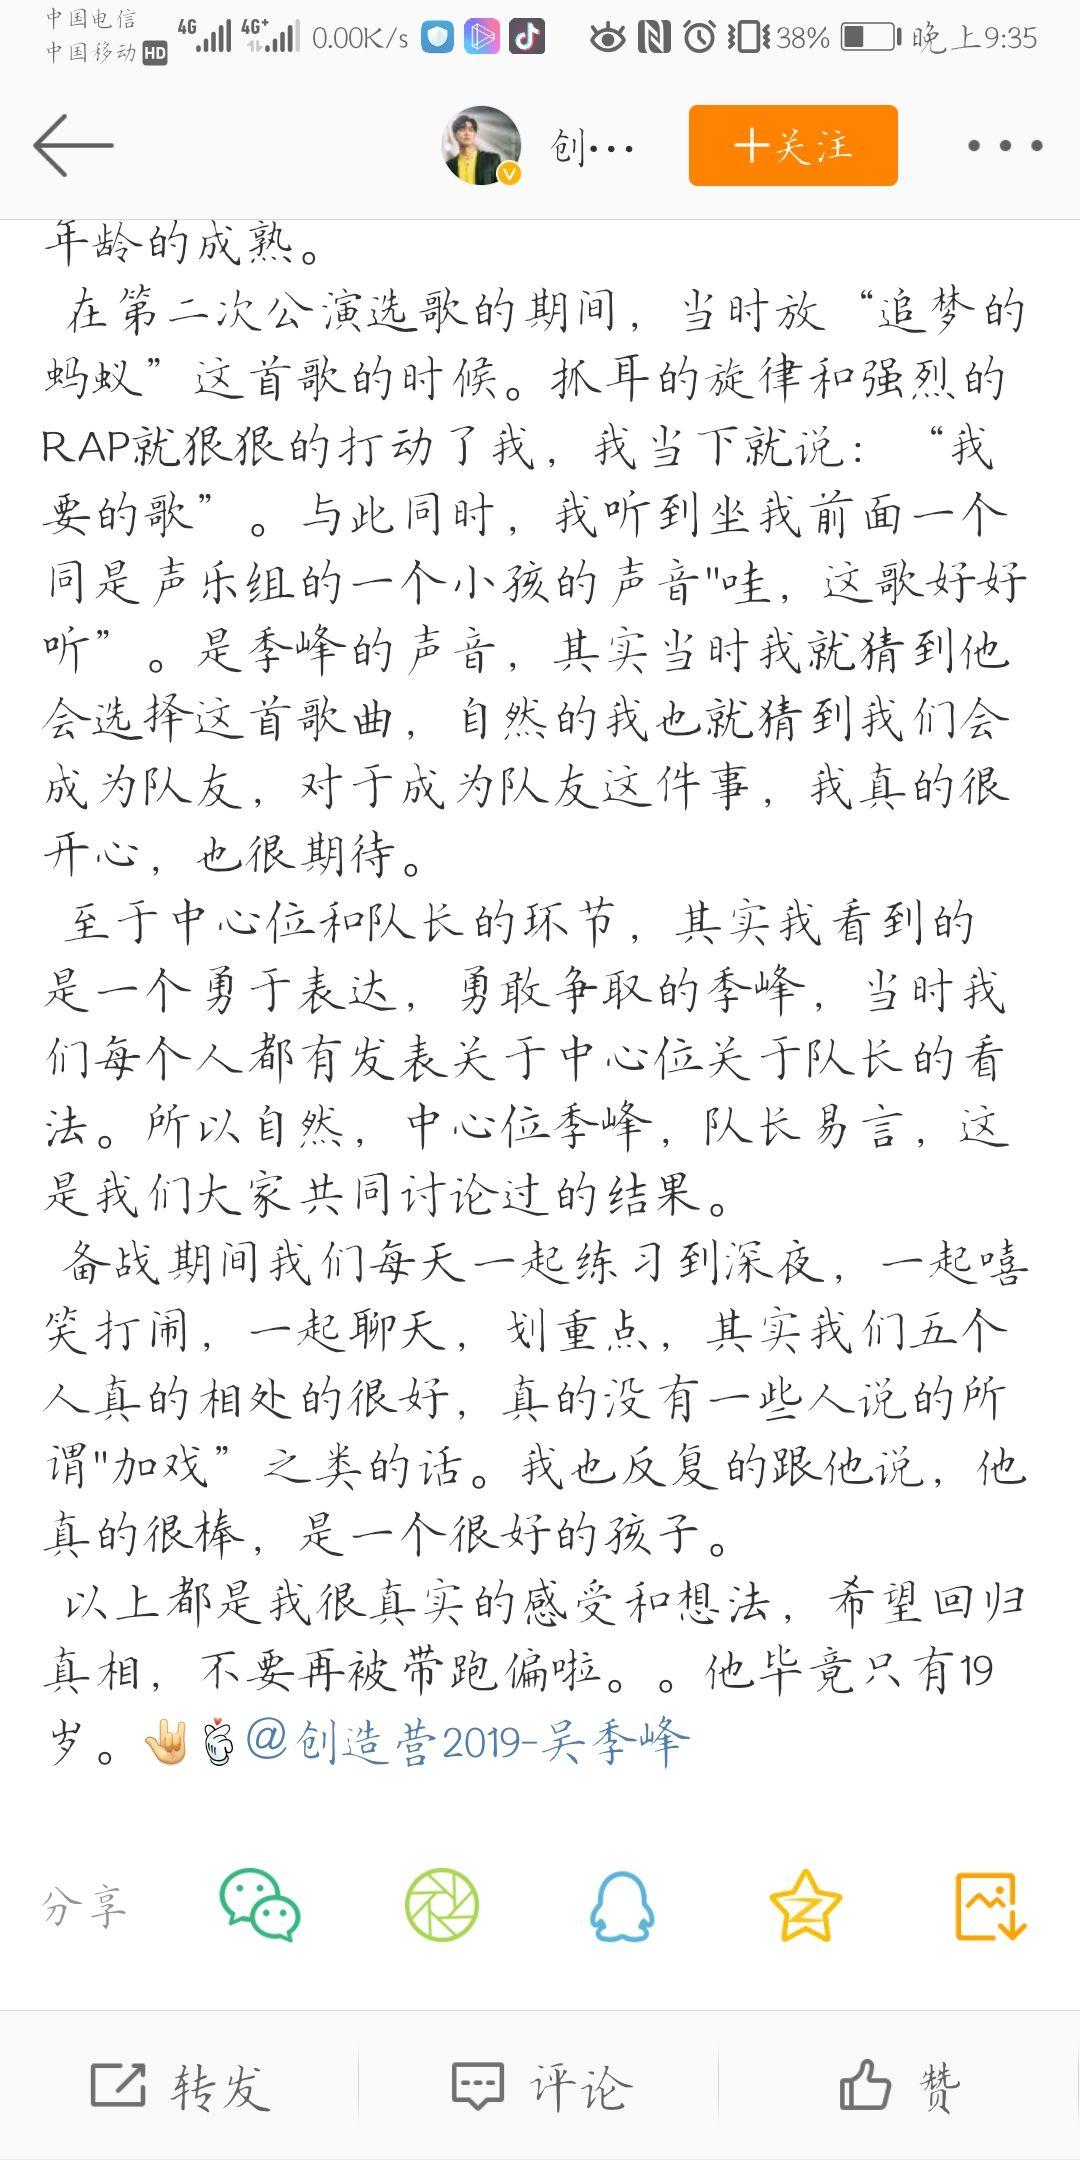 中国电信
中国移动 HD 4G 4G+ 0.00K/s 38% 晚上9:35
创… 十关注
年龄的成熟。
在第二次公演选歌的期间，当时放“追梦的
蚂蚁”这首歌的时候。抓耳的旋律和强烈的
RAP就狠狠的打动了我，我当下就说：“我
要的歌”。与此同时，我听到坐我前面一个
同是声乐组的一个小孩的声音"哇，这歌好好
听”。是季峰的声音，其实当时我就猜到他
会选择这首歌曲，自然的我也就猜到我们会
成为队友，对于成为队友这件事，我真的很
开心，也很期待。
至于中心位和队长的环节，其实我看到的
是一个勇于表达，勇敢争取的季峰，当时我
们每个人都有发表关于中心位关于队长的看
法。所以自然，中心位季峰，队长易言，这
是我们大家共同讨论过的结果。
备战期间我们每天一起练习到深夜，一起嘻
笑打闹，一起聊天，划重点，其实我们五个
人真的相处的很好，真的没有一些人说的所
谓"加戏”之类的话。我也反复的跟他说，他
真的很棒，是一个很好的孩子。
以上都是我很真实的感受和想法，希望回归
真相，不要再被带跑偏啦。。他毕竟只有19
岁。@创造营2019-吴季峰
分享
转发 评论 赞